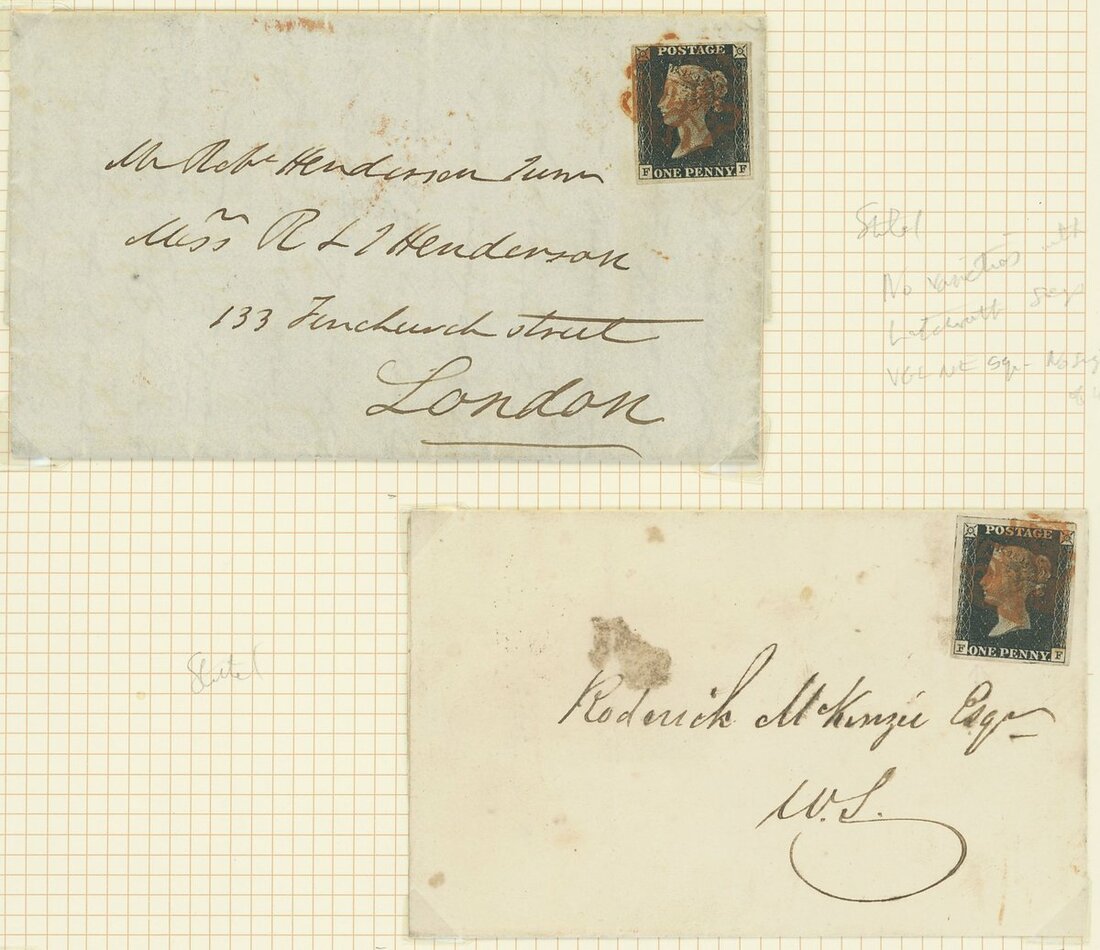 POSTAGE
F ONE PENNY F
Mr Robt Henderson Junr
Messrs R & J Henderson
133 Fenchurch street
London
No varieties with
VGC NE Sqr
POSTAGE
F ONE PENNY F
Roderick McKenzie Esqr
W.S.